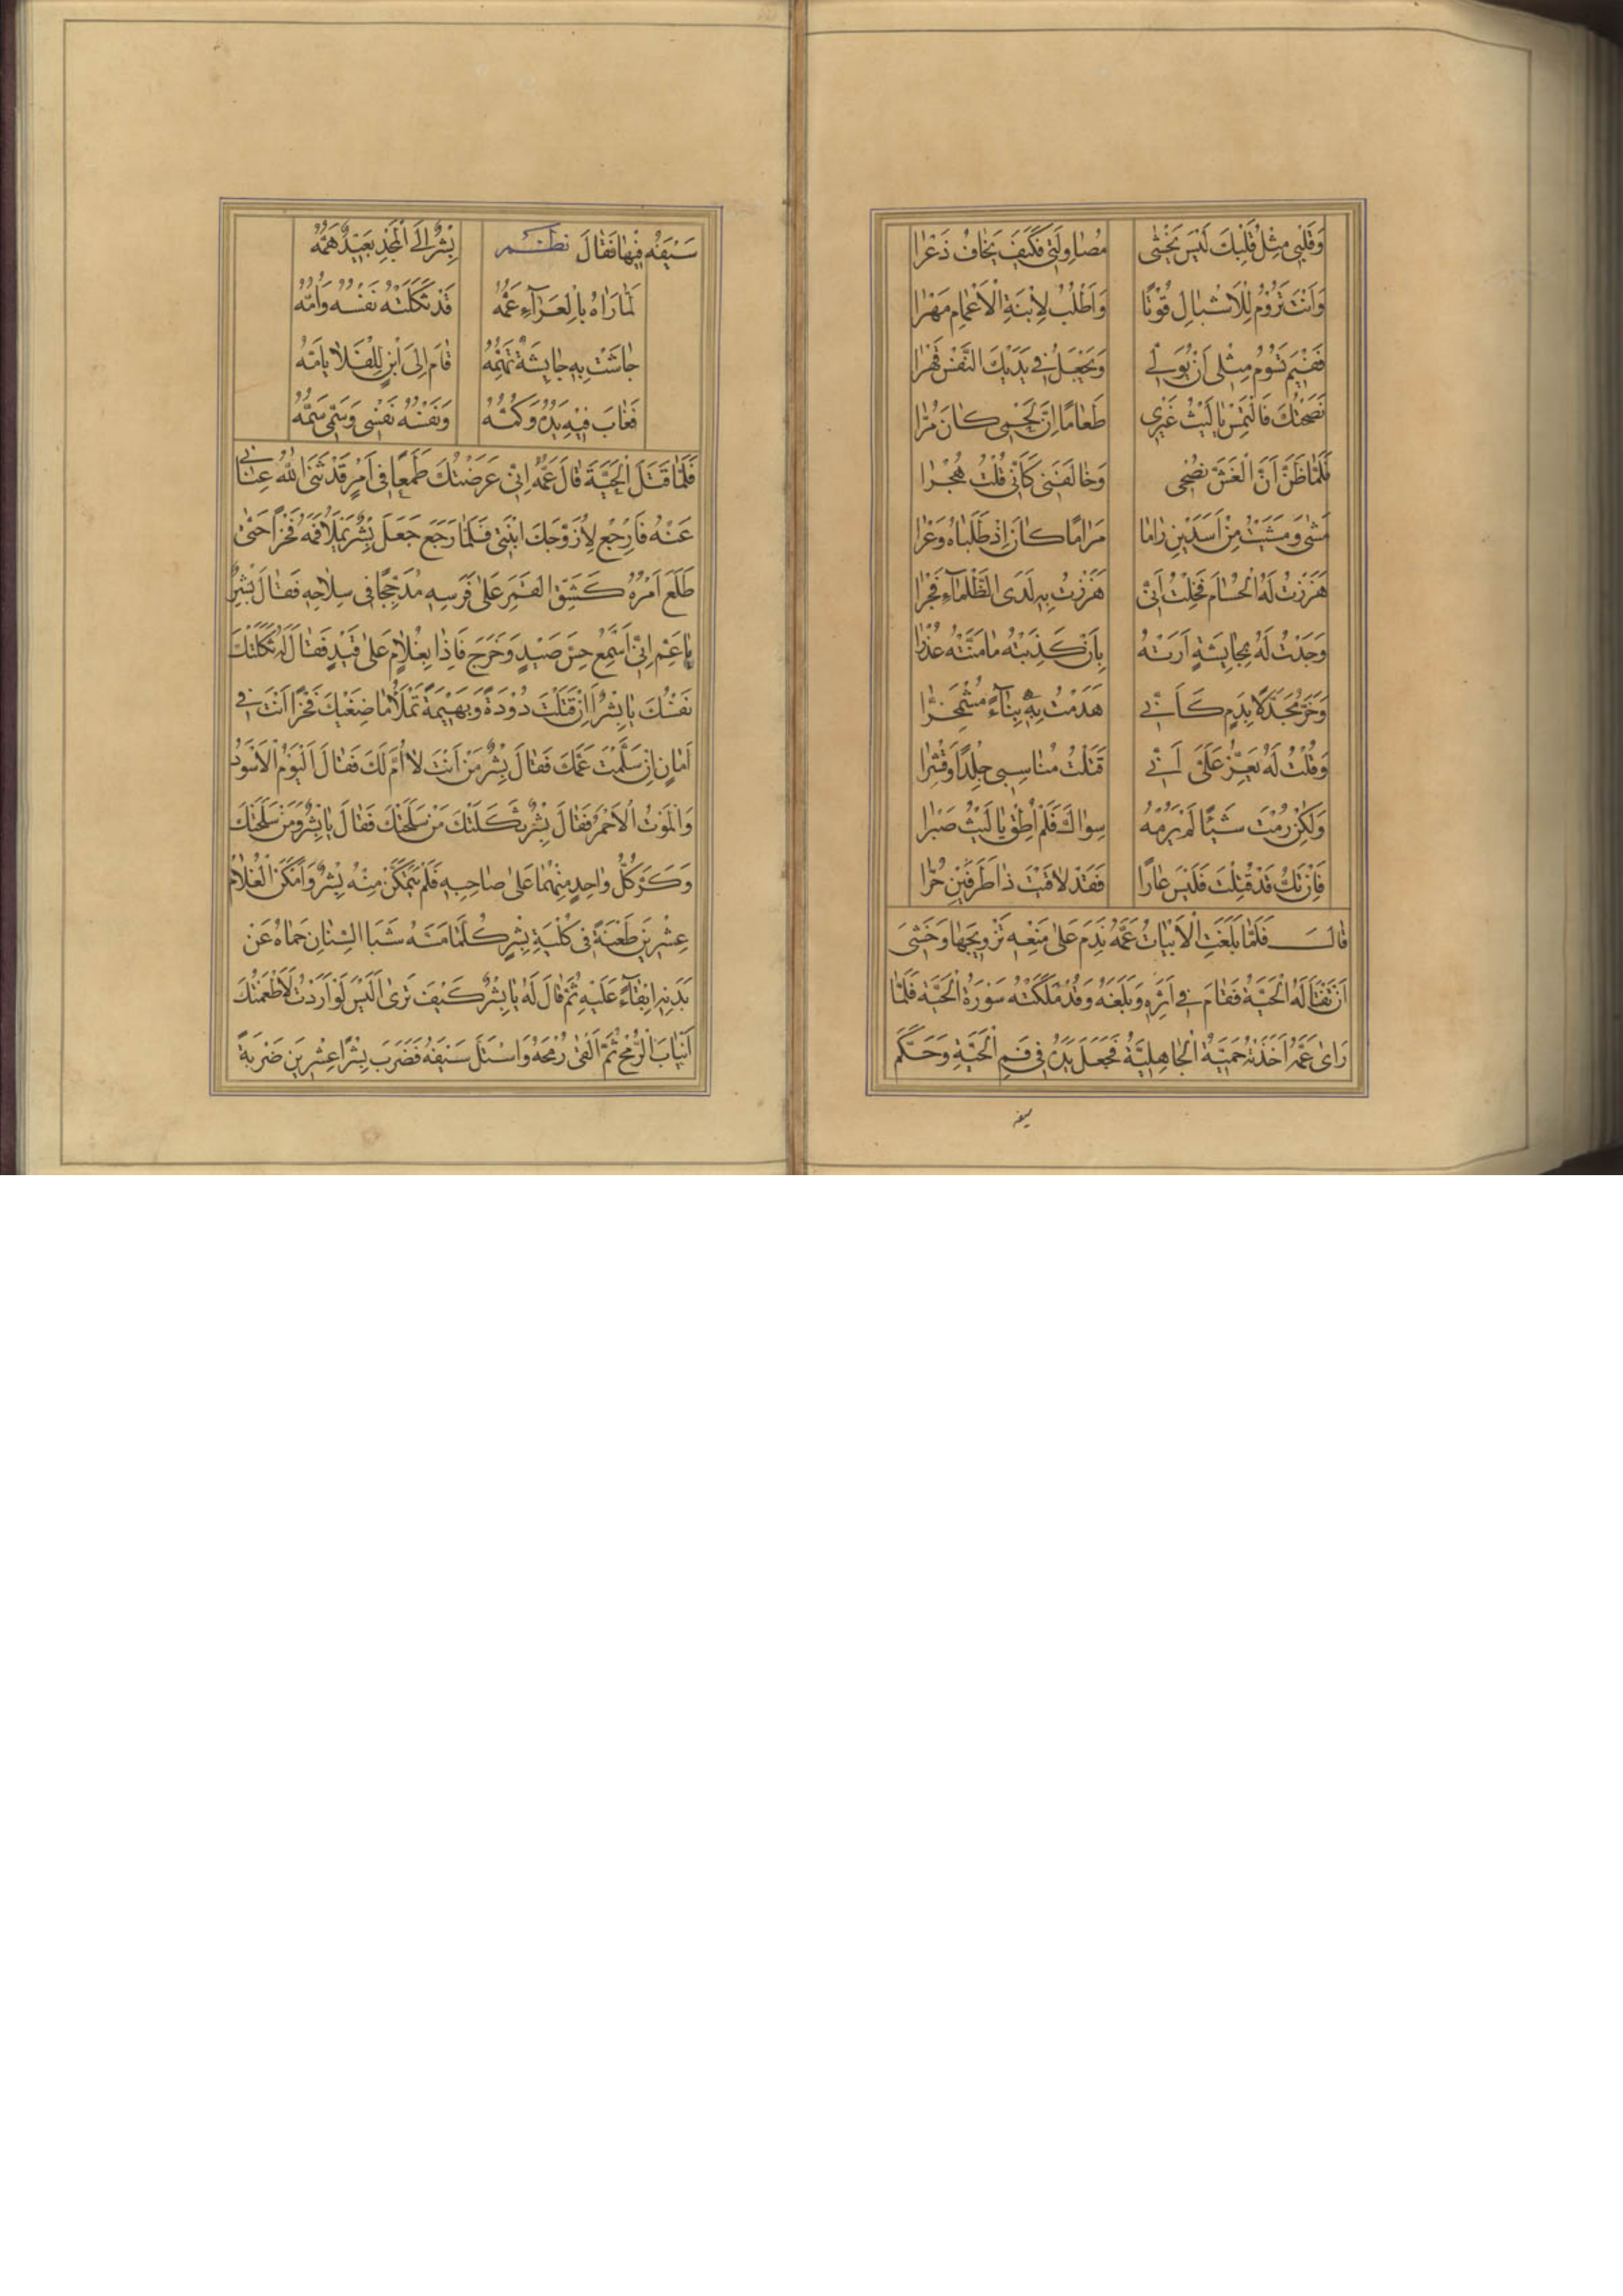 وَقَلْبِي مِثْلُ قَلْبِكَ لَيْسَ يَخْشٰى مُصَاوِلَتِي فَكَيْفَ يَخَافُ ذَعْرَا
وَاَنْتَ تَرُوْمُ لِلْاَشْبَالِ قُوْتًا وَاَطْلُبُ لِابْنَةِ الْاَعْمَامِ مَهْرَا
فَفِيْمَ تَسُوْمُ مِثْلِي اَنْ يُوَلِّي وَيَجْعَلَ فِي يَدَيْكَ النَّفْسَ قَهْرَا
نَصَحْتُكَ فَالْتَمِسْ يَا لَيْثُ غَيْرِي طَعَامًا اِنَّ لَحْمِي كَانَ مُرَّا
فَلَمَّا ظَنَّ اَنَّ الْغَشَّ نُصْحِي وَخَالَفَنِي كَاَنِّي قُلْتُ هُجْرَا
مَشٰى وَمَشَيْتُ مِنْ اَسَدَيْنِ رَامَا مَرَامًا كَانَ اِذْ طَلَبَاهُ وَعْرَا
هَزَزْتُ لَهُ الْحُسَامَ فَخِلْتُ اَنِّي هَزَزْتُ بِهِ لَدَى الظَّلْمَاءِ فَجْرَا
وَجَدْتُ لَهُ بِجَايِشَةٍ اَرَتْهُ بِاَنْ كَذَبَتْهُ مَا مَنَّتْهُ عُذْرَا
وَخَرَّ مُجَدَّلًا بِدَمٍ كَاَنِّي هَدَمْتُ بِهِ بِنَاءً مُشْمَخِرَّا
وَقُلْتُ لَهُ يَعِزُّ عَلَيَّ اَنِّي قَتَلْتُ مُنَاسِبِي جِلْدًا وَقَشْرَا
وَلٰكِنْ رُمْتَ شَيْئًا لَمْ يَرُمْهُ سِوَاكَ فَلَمْ اُطِقْ يَا لَيْثُ صَبْرَا
فَاِنْ تَكُ قَدْ قُتِلْتَ فَلَيْسَ عَارًا فَقَدْ لَاقَيْتَ ذَا طَرَفَيْنِ حُرَّا
قَالَ فَلَمَّا بَلَغَتِ الْاَبْيَاتُ عَمَّهُ نَدِمَ عَلٰى مَنْعِهِ تَزْوِيْجَهَا وَخَشِيَ
اَنْ تَغْتَالَهُ الْحَيَّةُ فَقَامَ فِي اَثَرِهِ وَبَلَغَهُ وَقَدْ مَلَكَتْهُ سَوْرَةُ الْحَيَّةِ فَلَمَّا
رَاٰى عَمَّهُ اَخَذَتْهُ حَمِيَّةُ الْجَاهِلِيَّةِ فَجَعَلَ يَدَهُ فِي فَمِ الْحَيَّةِ وَحَكَّمَ
سيفه
سَيْفَهُ فِيْهَا فَقَالَ نظم بِشْرٌ اِلَى الْمَجْدِ بَعِيْدٌ هَمُّهُ
لَمَّا رَاٰهُ بِالْعَرَاءِ عَمُّهُ قَدْ ثَكَلَتْهُ نَفْسُهُ وَاُمُّهُ
جَاشَتْ بِهِ جَايِشَةٌ تَهُمُّهُ قَامَ اِلَى ابْنٍ لِلْفَلَا يَاُمُّهُ
فَغَابَ فِيْهِ يَدُهُ وَكُمُّهُ وَنَفْسُهُ نَفْسِي وَسَمِّي سَمُّهُ
فَلَمَّا قَتَلَ الْحَيَّةَ قَالَ عَمُّهُ اِنِّي عَرَضْتُكَ طَمَعًا فِي اَمْرٍ قَدْ ثَنَى اللّٰهُ عِنَانِي
عَنْهُ فَارْجِعْ لِاُزَوِّجَكَ ابْنَتِي فَلَمَّا رَجَعَ جَعَلَ بِشْرٌ يَمْلَاُ فَمَهُ فَخْرًا حَتّٰى
طَلَعَ اَمْرَدُ كَشِقِّ الْقَمَرِ عَلٰى فَرَسِهِ مُدَجَّجًا فِي سِلَاحِهِ فَقَالَ بِشْرٌ
يَا عَمِّ اِنِّي اَسْمَعُ حِسَّ صَيْدٍ وَخَرَجَ فَاِذَا بِغُلَامٍ عَلٰى قَيْدٍ فَقَالَ لَهُ ثَكَلَتْكَ
نَفْسُكَ يَا بِشْرُ اَاِنْ قَتَلْتَ دُوْدَةً وَبَهِيْمَةً تَمْلَاُ مَاضِغَيْكَ فَخْرًا اَنْتَ فِي
اَمَانٍ اِنْ سَلَّمْتَ عَمَّكَ فَقَالَ بِشْرٌ مَنْ اَنْتَ لَا اُمَّ لَكَ فَقَالَ الْيَوْمُ الْاَسْوَدُ
وَالْمَوْتُ الْاَحْمَرُ فَقَالَ بِشْرٌ ثَكَلَتْكَ مَنْ سَلَحَتْكَ فَقَالَ يَا بِشْرُ وَمَنْ سَلَحَتْكَ
وَكَرَّ كُلُّ وَاحِدٍ مِنْهُمَا عَلٰى صَاحِبِهِ فَلَمْ يَتَمَكَّنْ مِنْهُ بِشْرٌ وَاَمْكَنَ الْغُلَامُ
عِشْرِيْنَ طَعْنَةً فِي كُلْيَةِ بِشْرٍ كُلَّمَا مَسَّهُ شَبَا السِّنَانِ حَمَاهُ عَنْ
بَدَنِهِ اِبْقَاءً عَلَيْهِ ثُمَّ قَالَ لَهُ يَا بِشْرُ كَيْفَ تَرٰى اَلَيْسَ لَوْ اَرَدْتُ لَاَطْعَمْتُكَ
اَنْيَابَ الرُّمْحِ ثُمَّ اَلْقٰى رُمْحَهُ وَاسْتَلَّ سَيْفَهُ فَضَرَبَ بِشْرًا عِشْرِيْنَ ضَرْبَةً